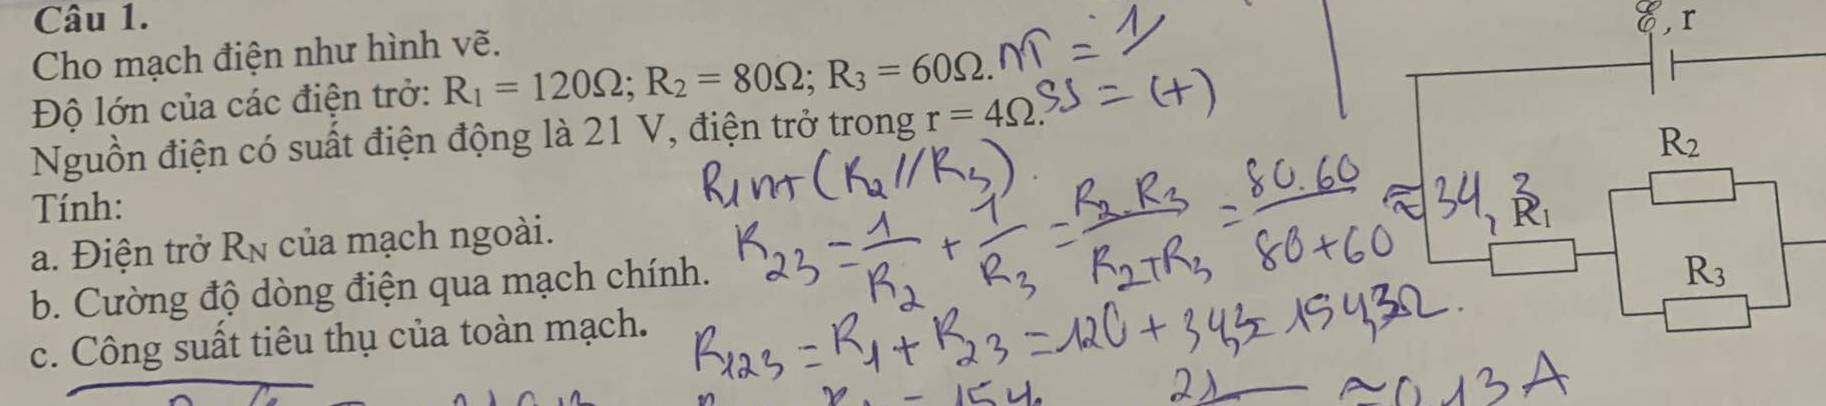 Câu 1.
Cho mạch điện như hình vẽ.
Độ lớn của các điện trở: R₁ = 120Ω; R₂ = 80Ω; R₃ = 60Ω.
nT = 1/
Nguồn điện có suất điện động là 21 V, điện trở trong r = 4Ω.
SS = (+)
Tính:
a. Điện trở R_N của mạch ngoài.
b. Cường độ dòng điện qua mạch chính.
c. Công suất tiêu thụ của toàn mạch.
R₁ nt (R₂//R₃).
R₂₃ = 1/R₂ + 1/R₃ = R₂.R₃/R₂+R₃ = 80.60/80+60 ≈ 34,3
R₁₂₃ = R₁ + R₂₃ = 120 + 34,3 = 154,3Ω.
21 ≈ 0,13 A
ℰ, r
R₂
R₁
R₃